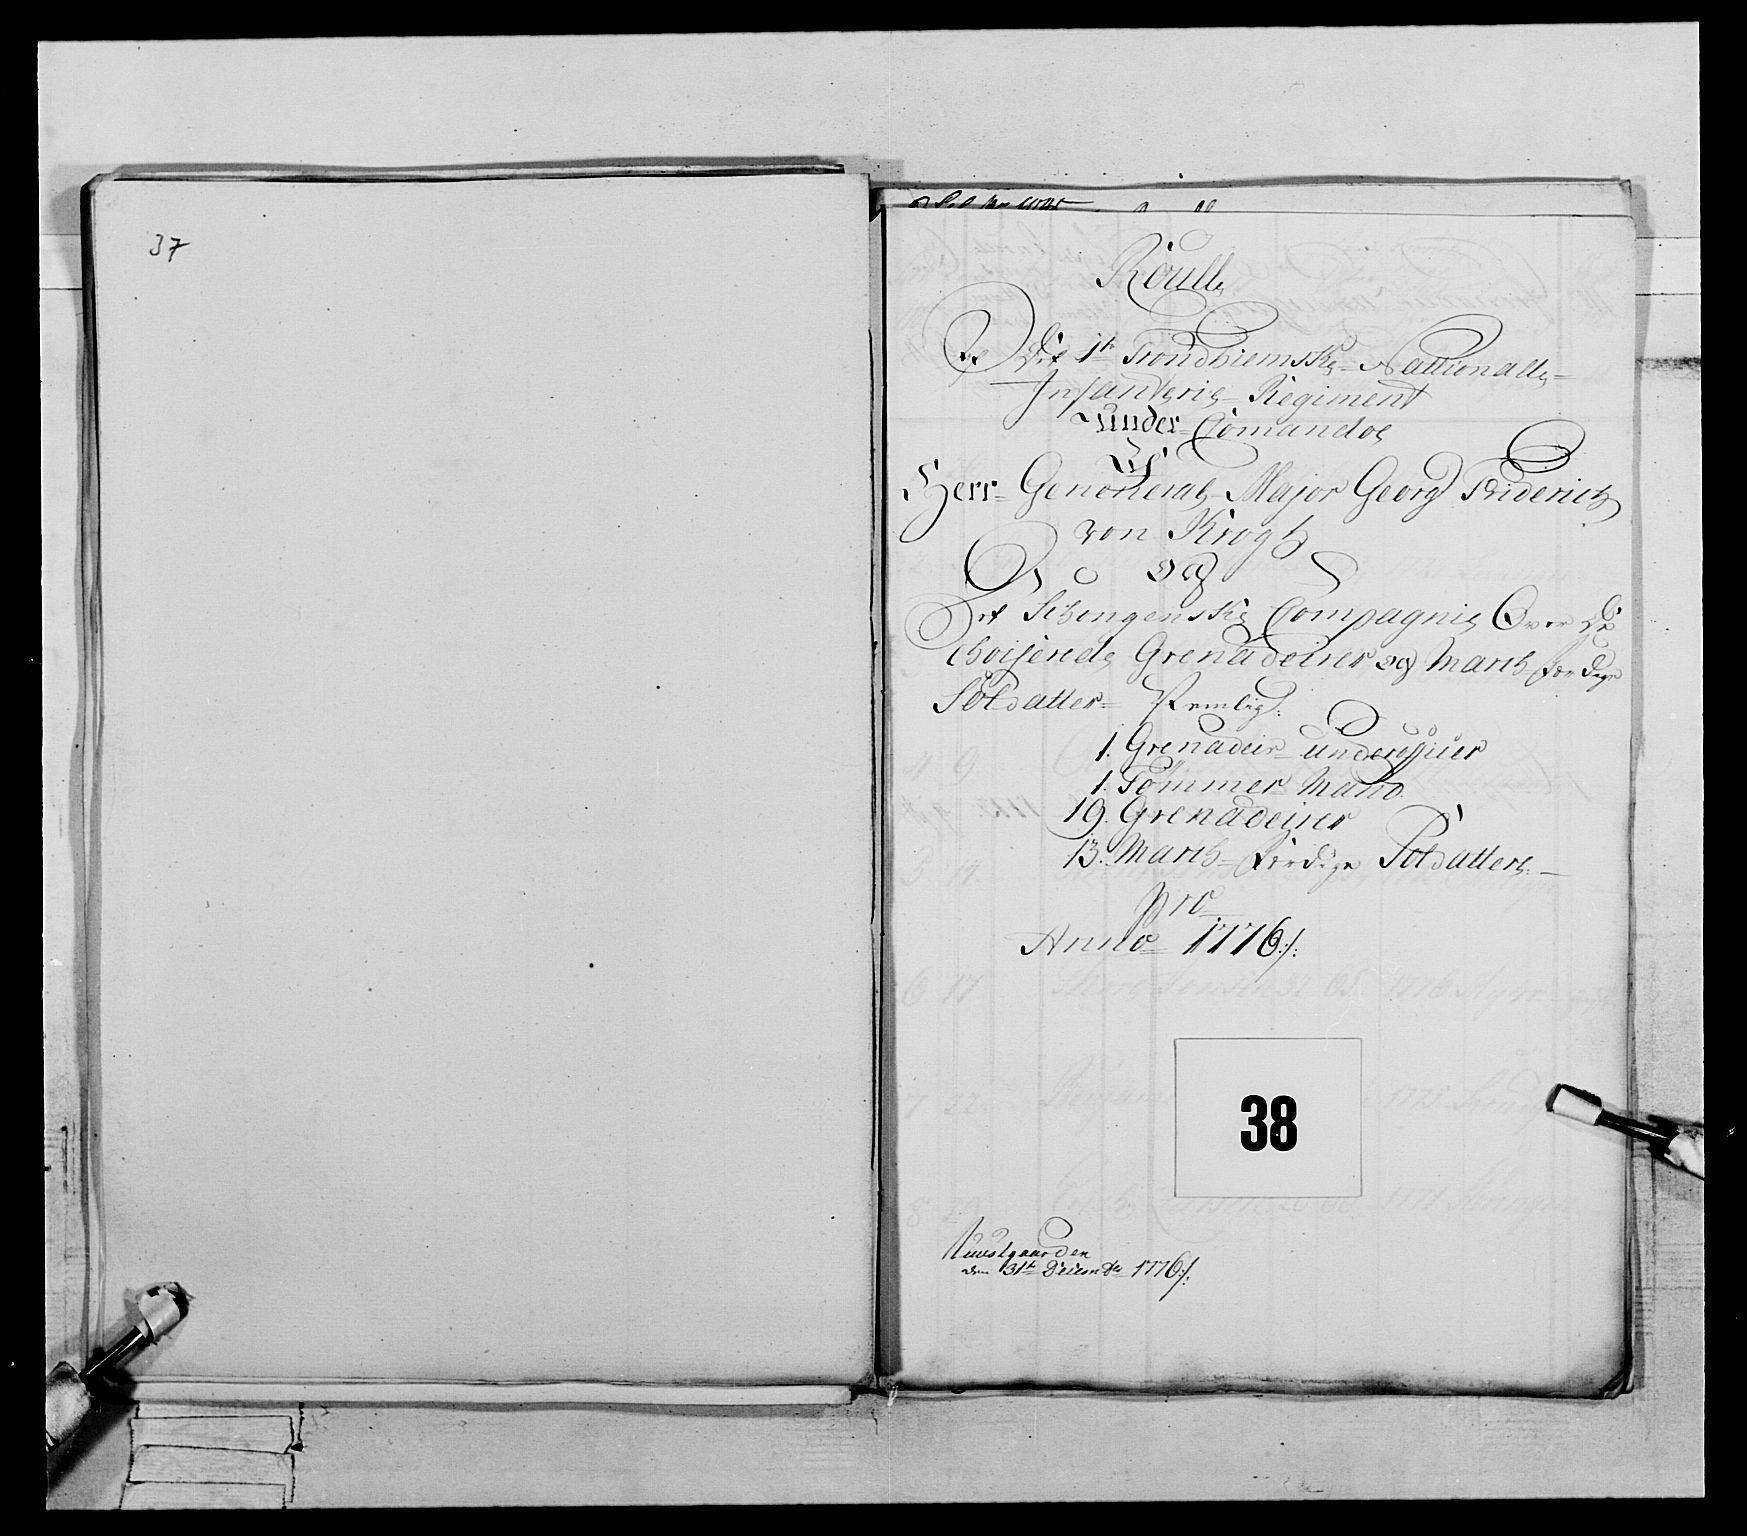 37
Roull
Det 1te Trondhiemske Nattionalle
Infanterie Regiment
under Comandoe
Af
Herr General Major Georg Friderich
von Krogh
og
Schongenske Compagnie Over
Grenadeirer og March færdige
Soldatter Nemlig:
1. Grenadeir underofficier
1. Tømmer Mand
19. Grenadeirer
13. March færdige Soldatter
pro
Anno 1776
38
den 31te Decembr 1776